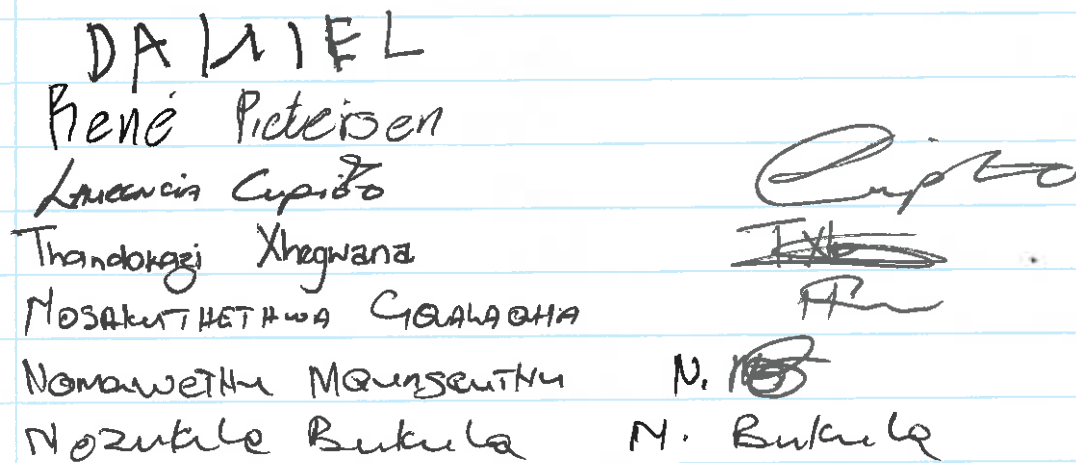 DANIEL
René Pietersen
Laurencia Cupido Cupido
Thandokazi Xhegwana TXh
Nosakuthethwa Gqalaqha
Nomawethu Mqungquthu N.
Nozukile Bukula N. Bukula